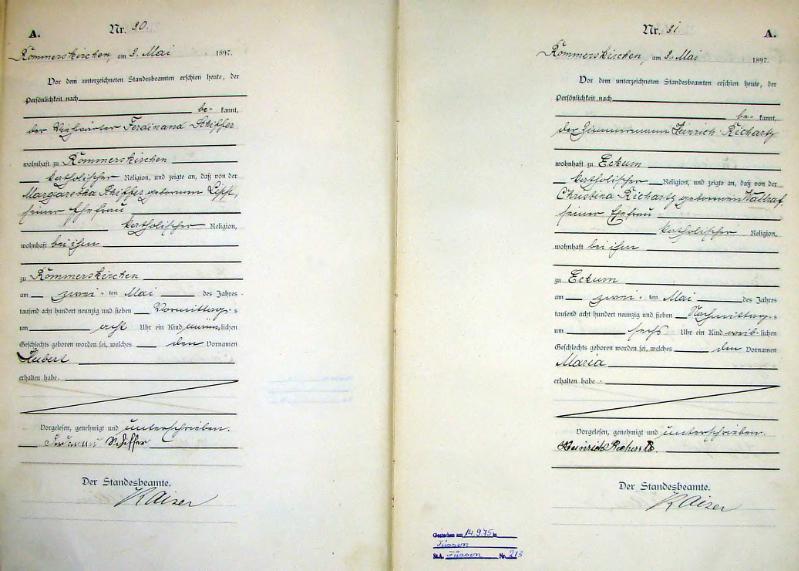 A.
Nr. 30
Rommerskirchen, am 3. Mai 1897.
Vor dem unterzeichneten Standesbeamten erschien heute, der
Persönlichkeit nach
be- kannt,
der Ferdinand Schiffer
wohnhaft zu Rommerskirchen
katholischer Religion, und zeigte an, daß von der
Margaretha Schiffer geborenen
seiner Ehefrau
katholischer Religion,
wohnhaft bei ihm
zu Rommerskirchen
am zwei-ten Mai des Jahres
tausend acht hundert neunzig und sieben Vormittags
um acht Uhr ein Kind männlichen
Geschlechts geboren worden sei, welches den Vornamen
Hubert
erhalten habe.
Vorgelesen, genehmigt und unterschrieben.
Schiffer
Der Standesbeamte.
Kaiser
Nr. 31
A.
Rommerskirchen, am 3. Mai 1897.
Vor dem unterzeichneten Standesbeamten erschien heute, der
Persönlichkeit nach
be- kannt,
der Zimmermann Heinrich Richartz
wohnhaft zu Eckum
katholischer Religion, und zeigte an, daß von der
Christina Richartz geborenen Wallraf
seiner Ehefrau
katholischer Religion,
wohnhaft bei ihm
zu Eckum
am zwei-ten Mai des Jahres
tausend acht hundert neunzig und sieben Nachmittags
um sechs Uhr ein Kind weiblichen
Geschlechts geboren worden sei, welches den Vornamen
Maria
erhalten habe.
Vorgelesen, genehmigt und unterschrieben.
Heinrich Richartz
Der Standesbeamte.
Kaiser
Gestorben am 14.9.75 in
Füssen
StA. Füssen Nr. 213